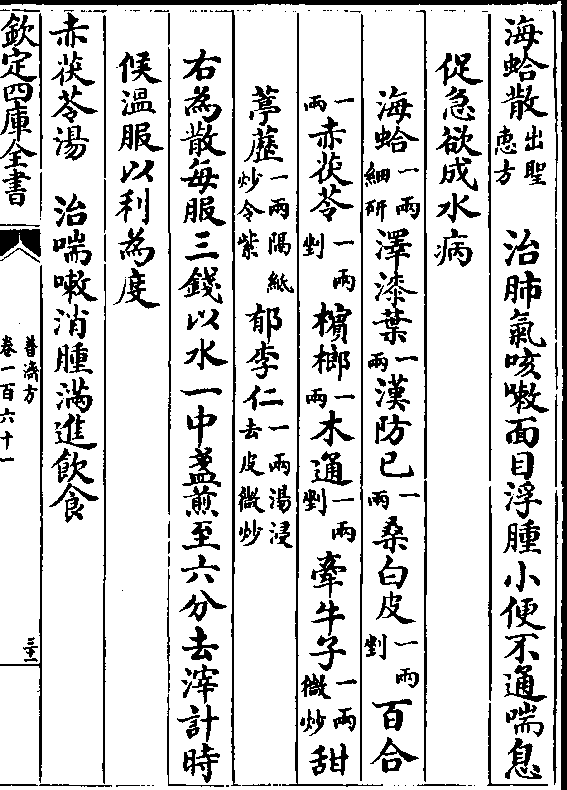 海蛤散出聖惠方 治肺氣咳嗽面目浮腫小便不通喘息
促急欲成水病
海蛤一兩細研澤漆葉一兩漢防已一兩桑白皮一兩剉百合
一兩赤茯苓一兩剉檳榔一兩木通一兩剉牽牛子一兩微炒甜
葶藶一兩隔紙炒令紫郁李仁一兩湯浸去皮微炒
右為散每服三錢以水一中盞煎至六分去滓計時
候溫服以利為度
赤茯苓湯 治喘嗽消腫滿進飲食
欽定四庫全書
普濟方
卷一百六十一